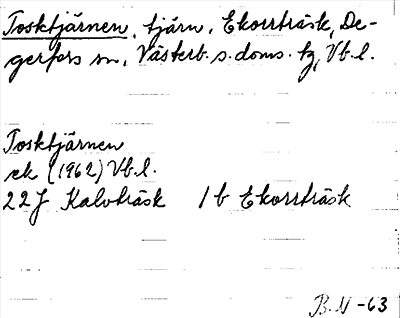 Tosktjärnen, tjärn, Ekorrträsk, De-
gerfors sn, Västerb. s. doms. tg, Vb. l.
Tosktjärnen
ek (1962) Vb. l.
22 J Kalvträsk 1 b Ekorrträsk
B. N -63